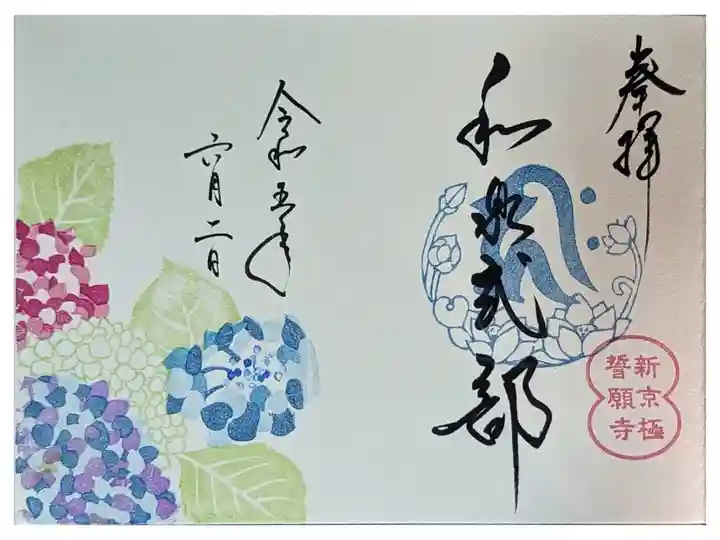 奉拝
和泉式部
令和五年
六月二日
新京極
誓願寺